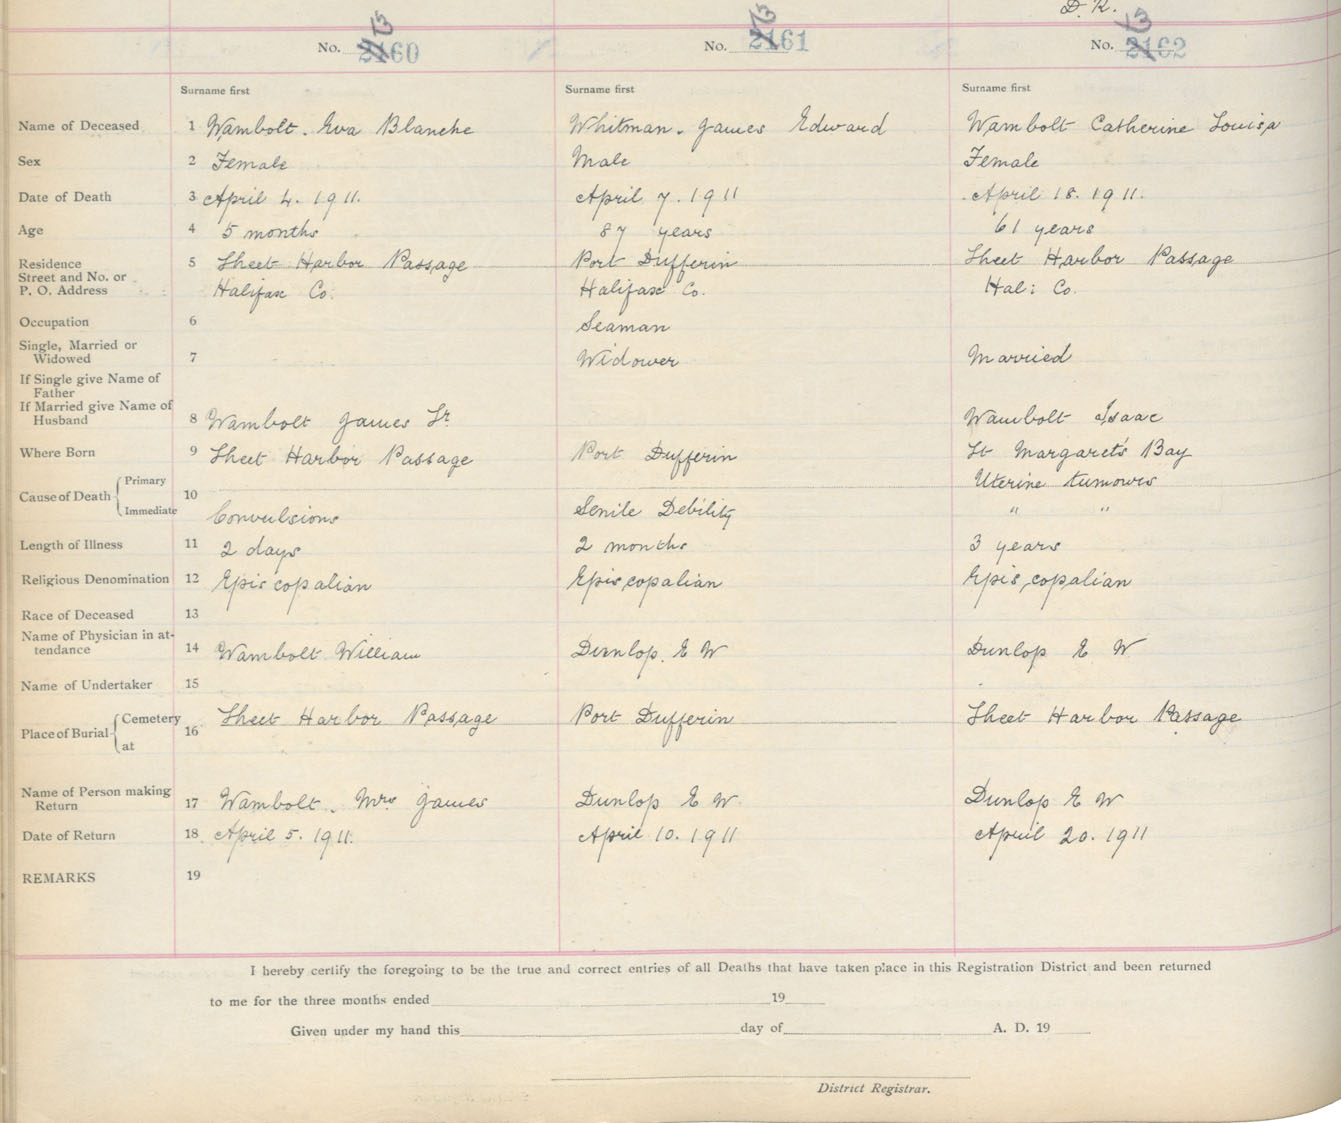 D. R.
No. 2160 No. 2161 No. 2162
Surname first Surname first Surname first
Name of Deceased 1 Wambolt. Eva Blanche Whitman. James Edward Wambolt Catherine Louisa
Sex 2 Female Male Female
Date of Death 3 April 4. 1911. April 7. 1911 April 18. 1911.
Age 4 5 months 87 years 61 years
Residence 5 Sheet Harbor Passage Port Dufferin Sheet Harbor Passage
Street and No. or
P. O. Address Halifax Co. Halifax Co. Hal: Co.
Occupation 6 Seaman
Single, Married or
Widowed 7 Widower Married
If Single give Name of
Father
If Married give Name of
Husband 8 Wambolt James Sr. Wambolt Isaac
Where Born 9 Sheet Harbor Passage Port Dufferin St Margaret's Bay
Cause of Death Primary 10 Uterine tumours
Immediate Convulsions Senile Debility " "
Length of Illness 11 2 days 2 months 3 years
Religious Denomination 12 Episcopalian Episcopalian Episcopalian
Race of Deceased 13
Name of Physician in at-
tendance 14 Wambolt William Dunlop. E W Dunlop E W
Name of Undertaker 15
Place of Burial Cemetery 16 Sheet Harbor Passage Port Dufferin Sheet Harbor Passage
at
Name of Person making
Return 17 Wambolt. Mrs James Dunlop E W. Dunlop E W
Date of Return 18 April 5. 1911. April 10. 1911 April 20. 1911
REMARKS 19
I hereby certify the foregoing to be the true and correct entries of all Deaths that have taken place in this Registration District and been returned
to me for the three months ended 19
Given under my hand this day of A. D. 19
District Registrar.